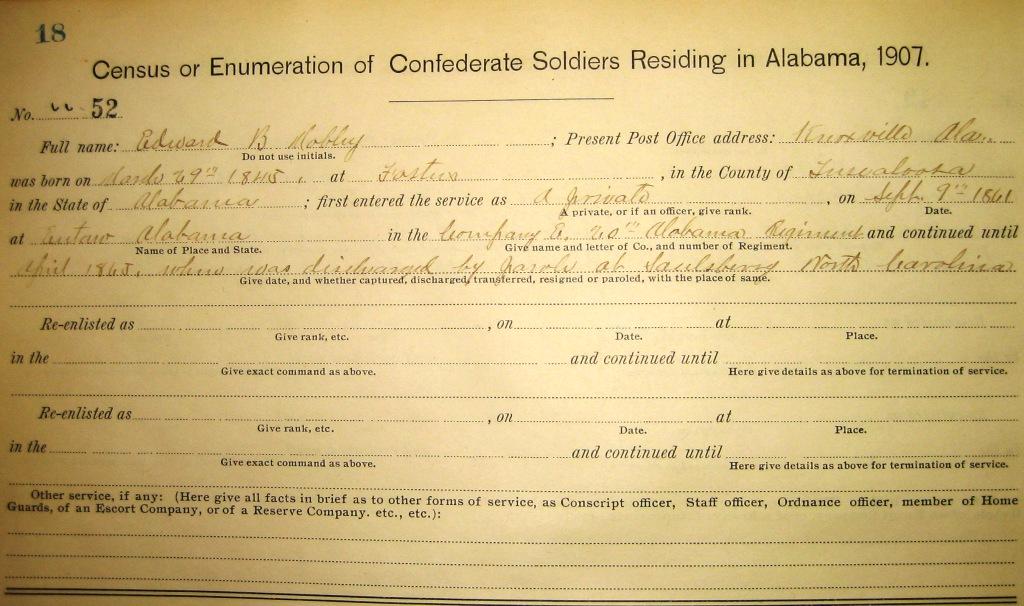 18
Census or Enumeration of Confederate Soldiers Residing in Alabama, 1907.
No. 52
Full name: Edward B Mobley ; Present Post Office address: Knoxville Ala.
Do not use initials.
was born on March 29th 1845, at Fosters , in the County of Tuscaloosa
in the State of Alabama ; first entered the service as A private , on Sept. 9th 1861
A private, or if an officer, give rank. Date.
at Eutaw Alabama in the Company E. 20th Alabama Regiment and continued until
Name of Place and State. Give name and letter of Co., and number of Regiment.
April 1865, when was discharged by parole at Saulsberry North Carolina
Give date, and whether captured, discharged, transferred, resigned or paroled, with the place of same.
Re-enlisted as , on at
Give rank, etc. Date. Place.
in the and continued until
Give exact command as above. Here give details as above for termination of service.
Re-enlisted as , on at
Give rank, etc. Date. Place.
in the and continued until
Give exact command as above. Here give details as above for termination of service.
Other service, if any: (Here give all facts in brief as to other forms of service, as Conscript officer, Staff officer, Ordnance officer, member of Home
Guards, of an Escort Company, or of a Reserve Company. etc., etc.):